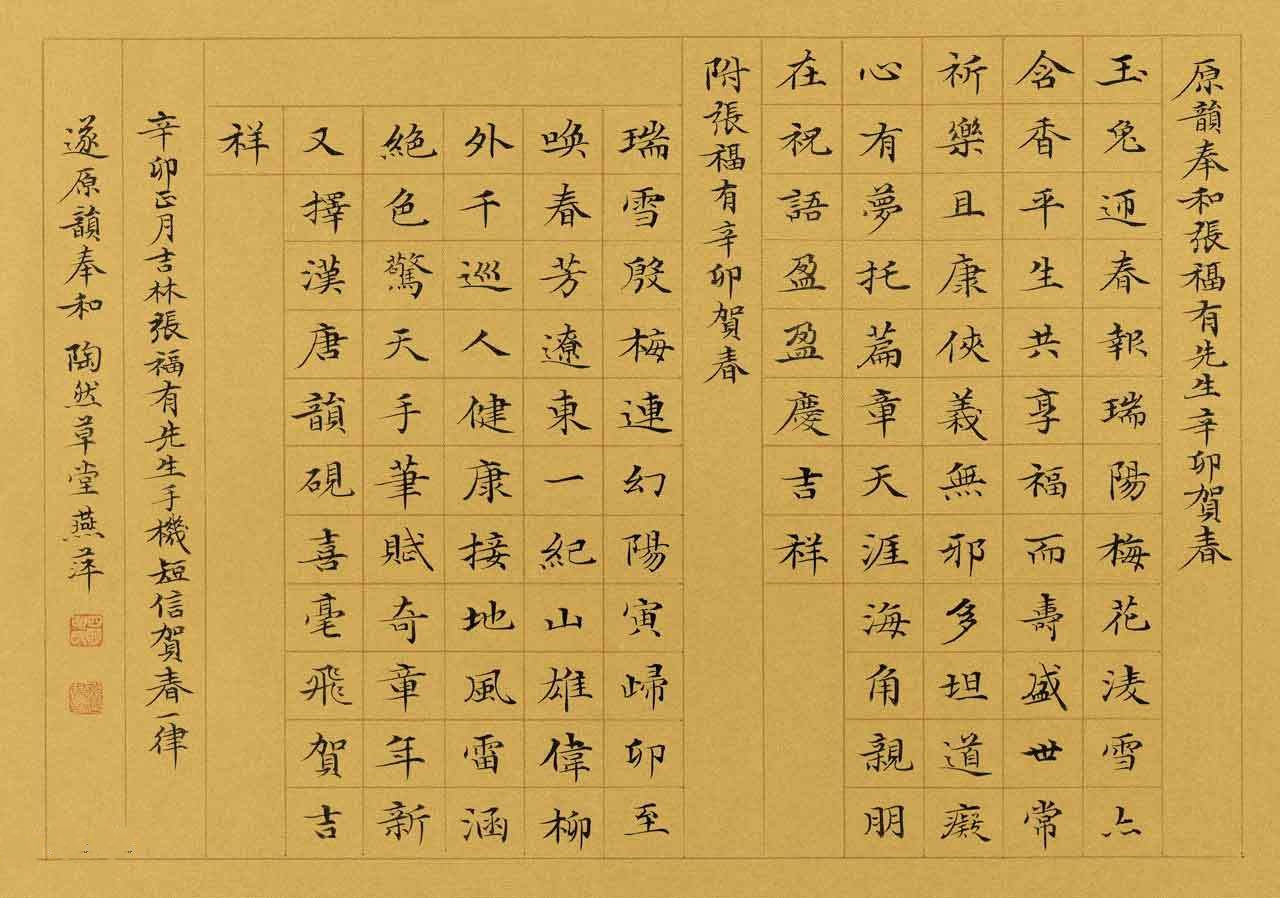 原韻奉和張福有先生辛卯賀春
玉兔迎春報瑞陽梅花淩雪亦
含香平生共享福而壽盛世常
祈樂且康俠義無邪多坦道癡
心有夢托篇章天涯海角親朋
在祝語盈盈慶吉祥
附張福有辛卯賀春
瑞雪殷梅連幻陽寅歸卯至
喚春芳遼東一紀山雄偉柳
外千巡人健康接地風雷涵
絕色驚天手筆賦奇章年新
又擇漢唐韻硯喜毫飛賀吉
祥
辛卯正月吉林張福有先生手機短信賀春一律
遂原韻奉和 陶然草堂燕萍